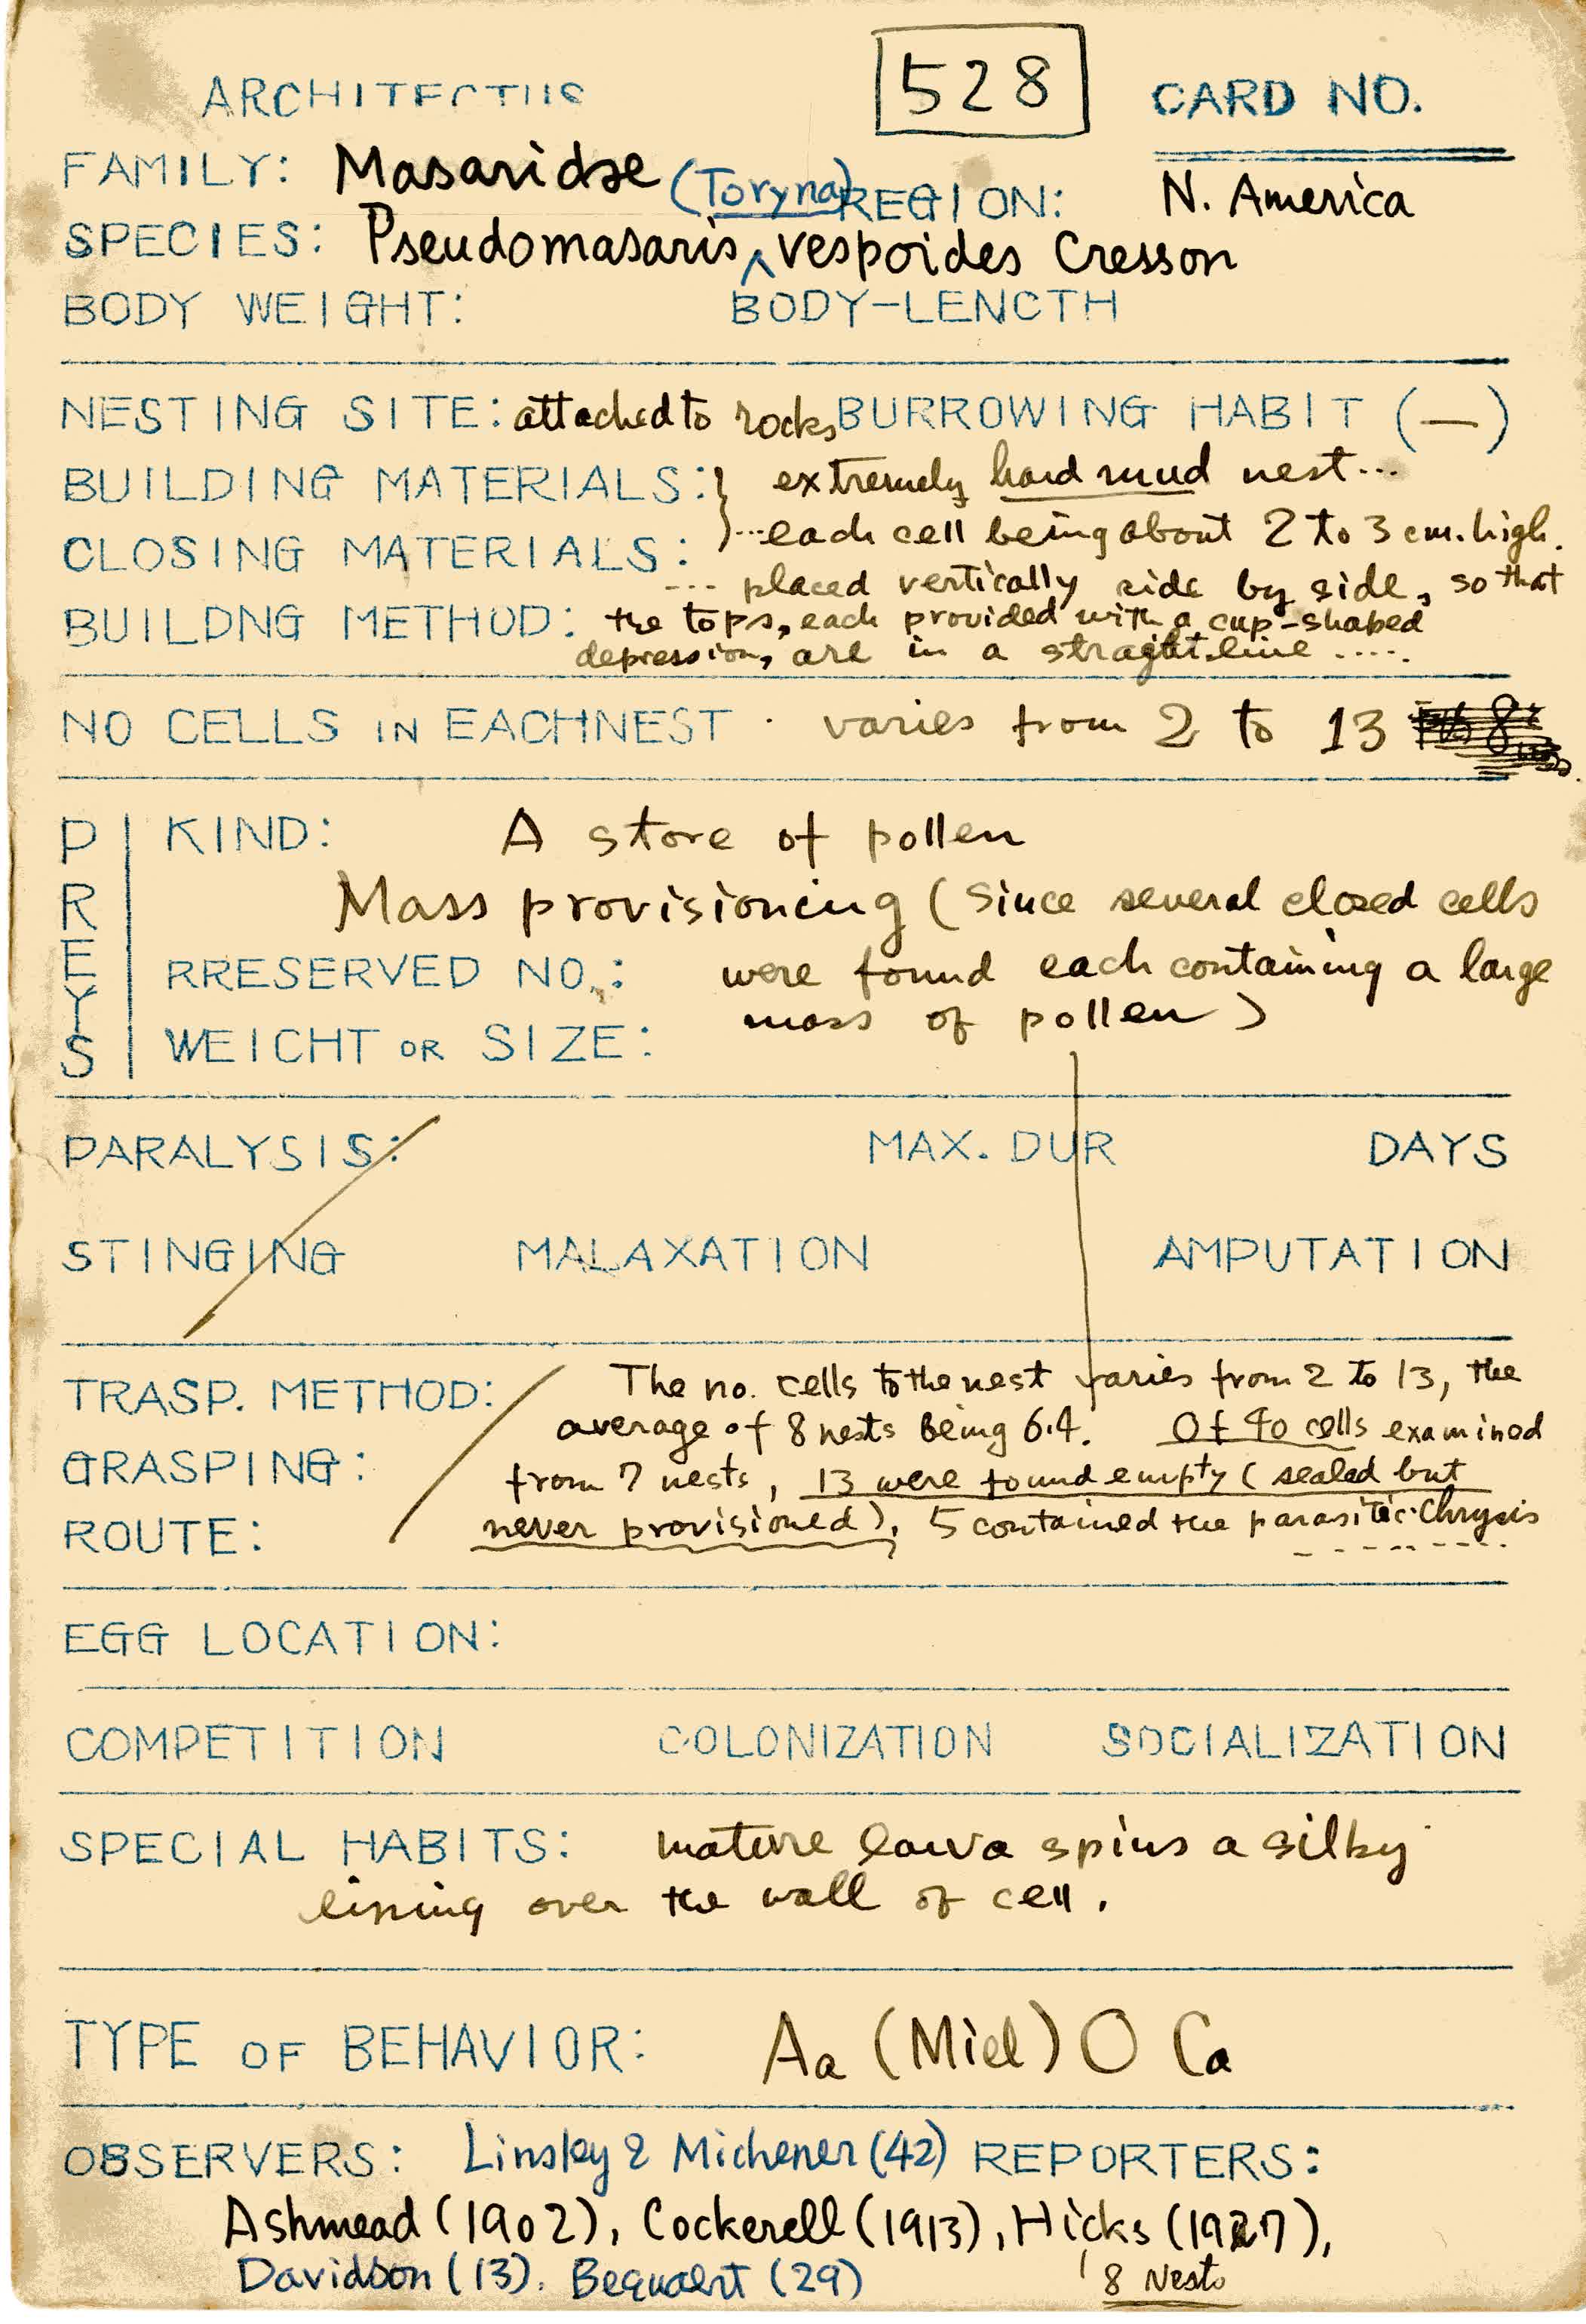 ARCHITECTUS 528 CARD NO.
FAMILY: Masaridae (Toryna) REGION: N. America
SPECIES: Pseudomasaris ^ vespoides Cresson
BODY WEIGHT: BODY-LENCTH
NESTING SITE: attached to rocks BURROWING HABIT (—)
BUILDING MATERIALS: } extremely hard mud nest...
CLOSING MATERIALS: ...each cell being about 2 to 3 cm. high.
... placed vertically side by side, so that
BUILDNG METHOD: the tops, each provided with a cup-shaped
depression, are in a straight line .....
NO CELLS IN EACHNEST . varies from 2 to 13
PREYS
KIND: A store of pollen
Mass provisioning (Since several closed cells
RRESERVED NO.: were found each containing a large
mass of pollen)
WEICHT OR SIZE:
PARALYSIS: MAX. DUR DAYS
STINGING MALAXATION AMPUTATION
TRASP. METHOD: The no. cells to the nest varies from 2 to 13, the
average of 8 nests being 6.4. Of 40 cells examined
GRASPING: from 7 nests, 13 were found empty (sealed but
ROUTE: never provisioned), 5 contained the parasitic Chrysis
EGG LOCATION:
COMPETITION COLONIZATION SOCIALIZATION
SPECIAL HABITS: mature larva spins a silky
lining over the wall of cell.
TYPE OF BEHAVIOR: Aa (Miel) O Ca
OBSERVERS: Linsley & Michener (42) REPORTERS:
Ashmead (1902), Cockerell (1913), Hicks (1927),
Davidson (13). Bequaert (29) 8 Nests